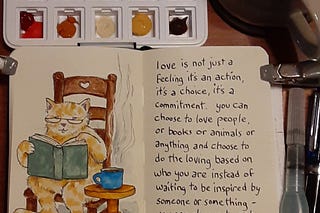 love is not just a
feeling it's an action,
it's a choice, it's a
commitment. you can
choose to love people,
or books or animals or
anything and choose to
do the loving based on
who you are instead of
waiting to be inspired by
someone or something -